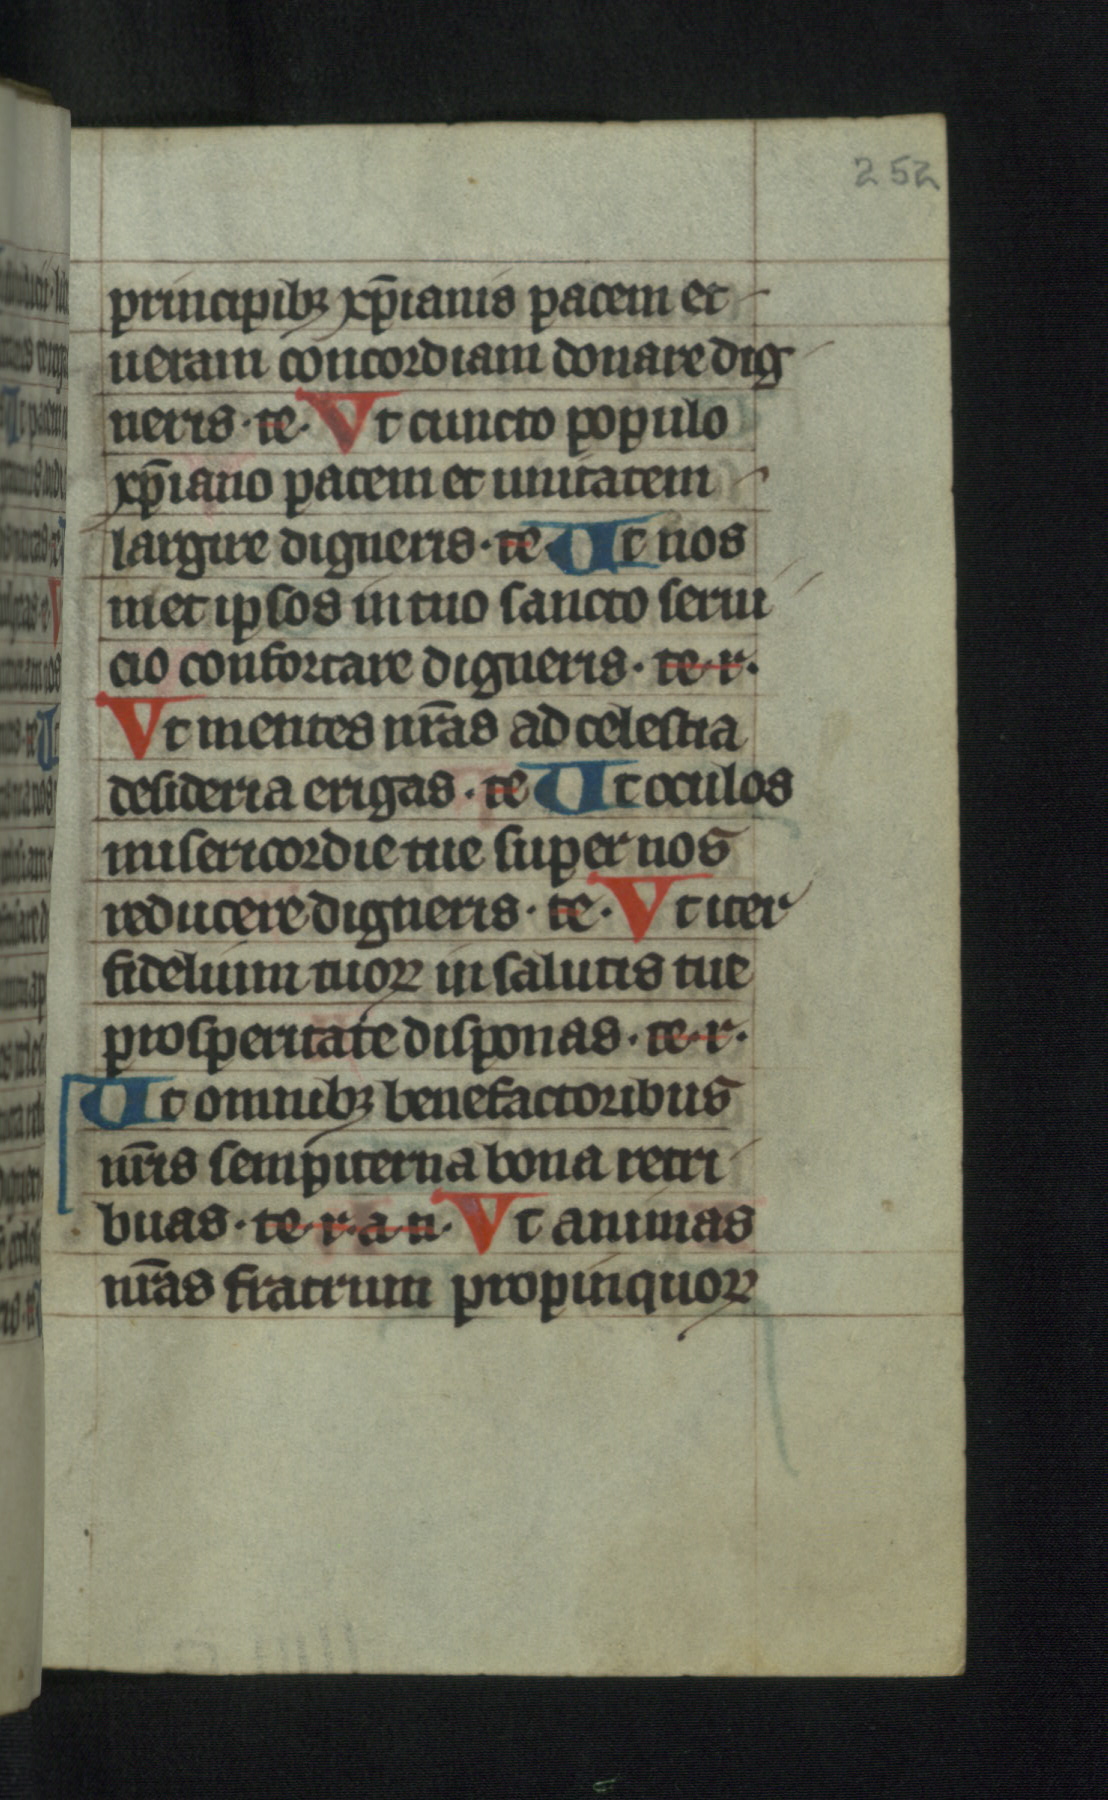 252
principibꝫ xp̄ianis pacem et
ueram concordiam donare dig
neris · te · Vt cuncto populo
xp̄iano pacem et unitatem
largire digneris · te · Ut nos
met ipsos in tuo sancto serui
cio confortare digneris · te · r ·
Vt mentes nr̄as ad celestia
desideria erigas · te Ut oculos
misericordie tue super nos
reducere digneris · te · Vt iter
fidelium tuoꝝ in salutis tue
prosperitate disponas · te · r ·
Ut omnibꝫ benefactoribus
nr̄is sempiterna bona retri
buas · te · r · a · n · Vt animas
nr̄as fratrum propinquoꝝ